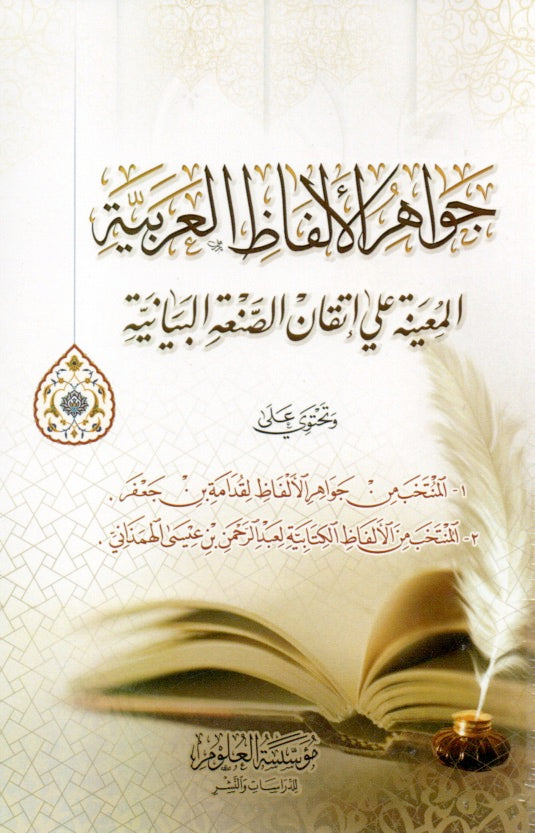 جَوَاهِرُ الأَلْفَاظِ الْعَرَبِيَّةِ
المُعِينَةِ عَلَى إِتْقَانِ الصَّنْعَةِ البَيَانِيَّةِ
وَتَحْتَوِي عَلَى
١- المُنْتَخَبُ مِنْ جَوَاهِرِ الأَلْفَاظِ لِقُدَامَةَ بِنْ جَعْفَرَ .
٢- المُنْتَخَبُ مِنَ الأَلْفَاظِ الكِتَابِيَّةِ لِعَبْدِ الرَّحْمنِ بْنِ عِيسَى الهَمَذَانِيِّ .
مُؤَسَّسَةُ العُلُومِ
لِلدِّرَاسَاتِ وَالنَّشْرِ